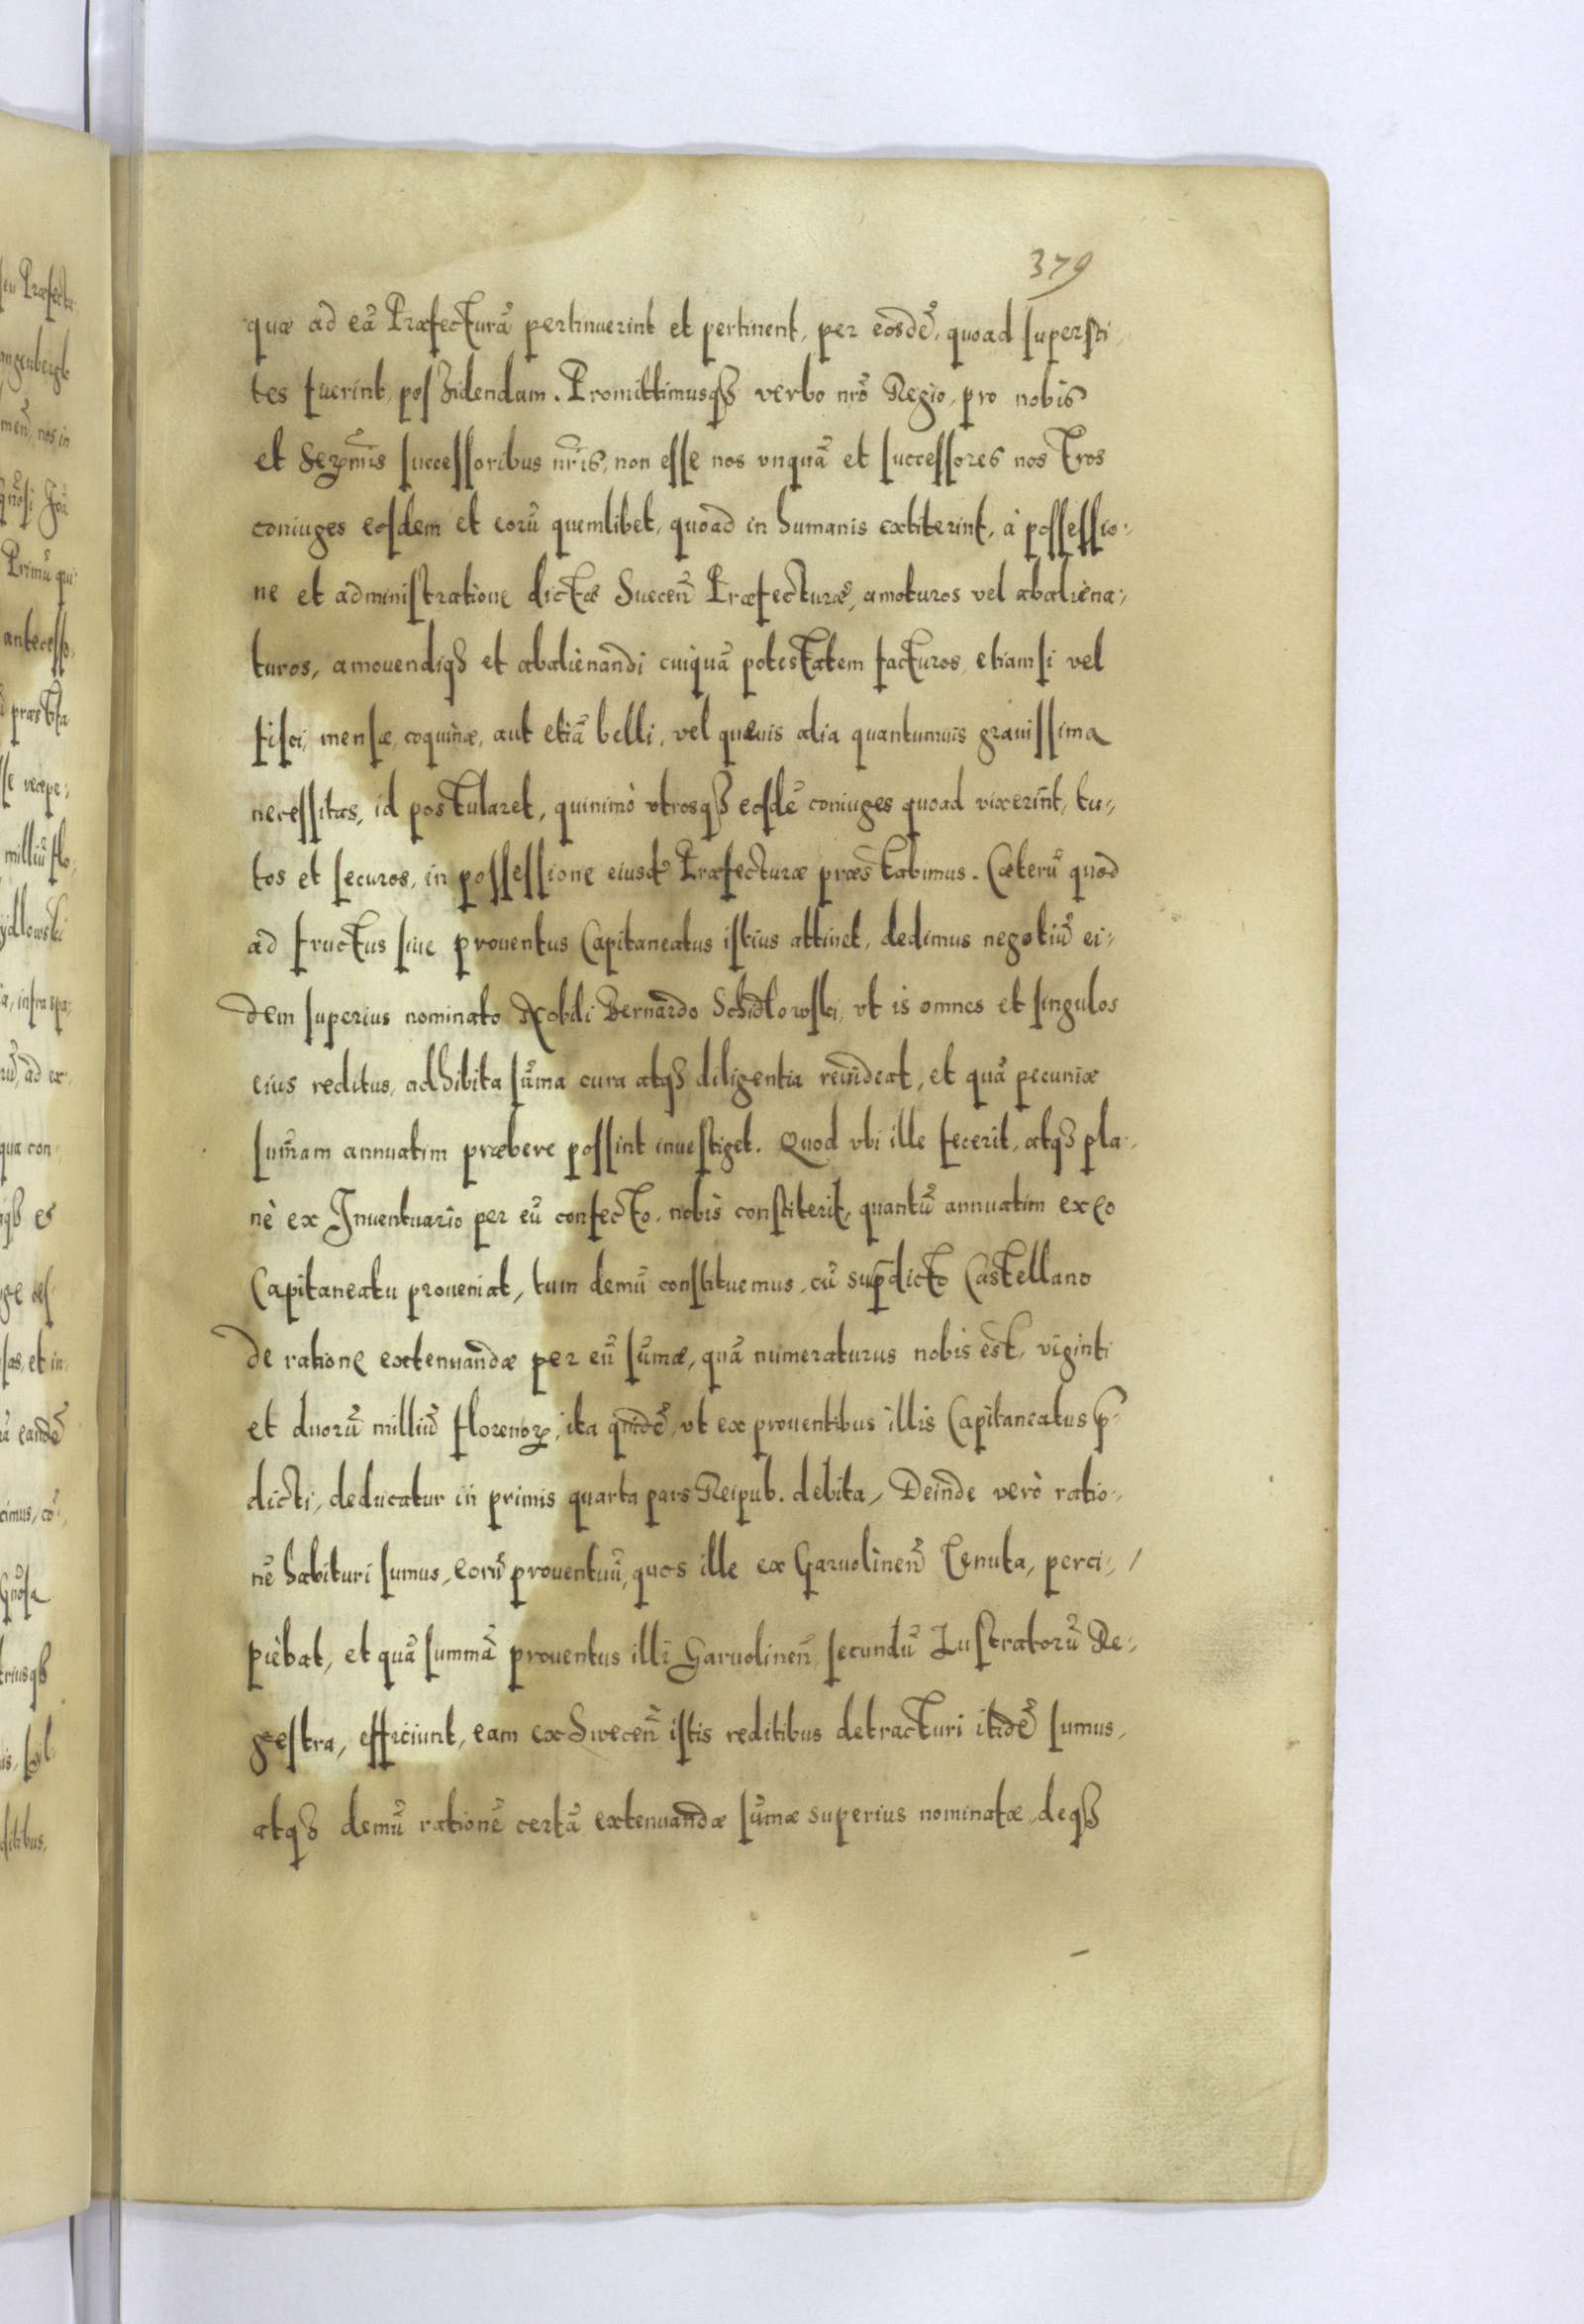 379
quæ ad eã Præfecturã pertinuerint et pertinent, per eosdẽ, quoad supersti,
tes fuerint, possidendam. Promittimusqȝ verbo nrõ Regio, pro nobis
et Serꝫmis successoribus nr̃is, non esse nos vnquã et successores nostros
coniuges eosdem et eorũ quemlibet, quoad in humanis extiterint, à possessio,
ne et administratione dictæ Suecen̄ Præfecturæ, amoturos vel abaliena,
turos, amouendiqȝ et abalienandi cuiquã potestatem facturos, etiamsi vel
fisci, mensæ, coquinæ, aut etiã belli, vel quæuis alia quantumuis grauissima
necessitas, id postularet, quinimò vtrosqȝ eosdẽ coniuges quoad vixerint, tu,
tos et securos, in possessione eiusdẽ Præfecturæ præstabimus. Cæterũ quod
ad fructus siue prouentus Capitaneatus istius attinet, dedimus negotiũ ei,
dem superius nominato Nobili Bernardo Schidlowski, vt is omnes et singulos
eius reditus, adhibita sũma cura atqȝ diligentia reuideat, et quã pecuniæ
sum̃am annuatim præbere possint inuestiget. Quod vbi ille fecerit, atqȝ pla,
nè ex Inuentuario per eũ confecto, nobis constiterit, quantũ annuatim ex eo
Capitaneatu proueniat, tum demũ constituemus, cũ sup̃dicto Castellano
de ratione extenuandæ per eũ sũmæ, quã numeraturus nobis est, viginti
et duorũ milliũ florenorꝝ, ita quidẽ, vt ex prouentibus illis Capitaneatus p̃,
dicti, deducatur in primis quarta pars Reipub. debita, Deinde verò ratio,
nẽ habituri sumus, eorũ prouentuũ, quos ille ex Garuolinen̄ Tenuta, perci,
piebat, et quã summã prouentus illi Garuolinen̄, secundũ Lustratorũ Re,
gestra, efficiunt, eam ex Swecen̄ istis reditibus detracturi itidẽ sumus,
atqȝ demũ rationẽ certã extenuandæ sũmæ superius nominatæ, deqȝ